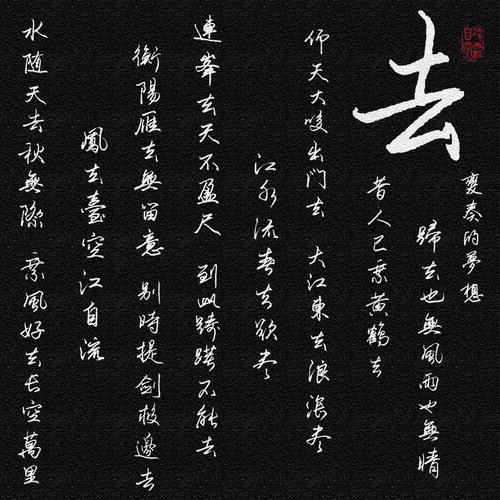 去
變奏的夢想
歸去也無風雨也無晴
昔人已乘黃鶴去
仰天大咲出門去 大江東去浪濤盡
江水流春去欲盡
連峯去天不盈尺 到此躊躇不能去
衡陽雁去無留意 別時提劍救邊去
鳳去臺空江自流
水随天去秋無際 乘風好去长空萬里